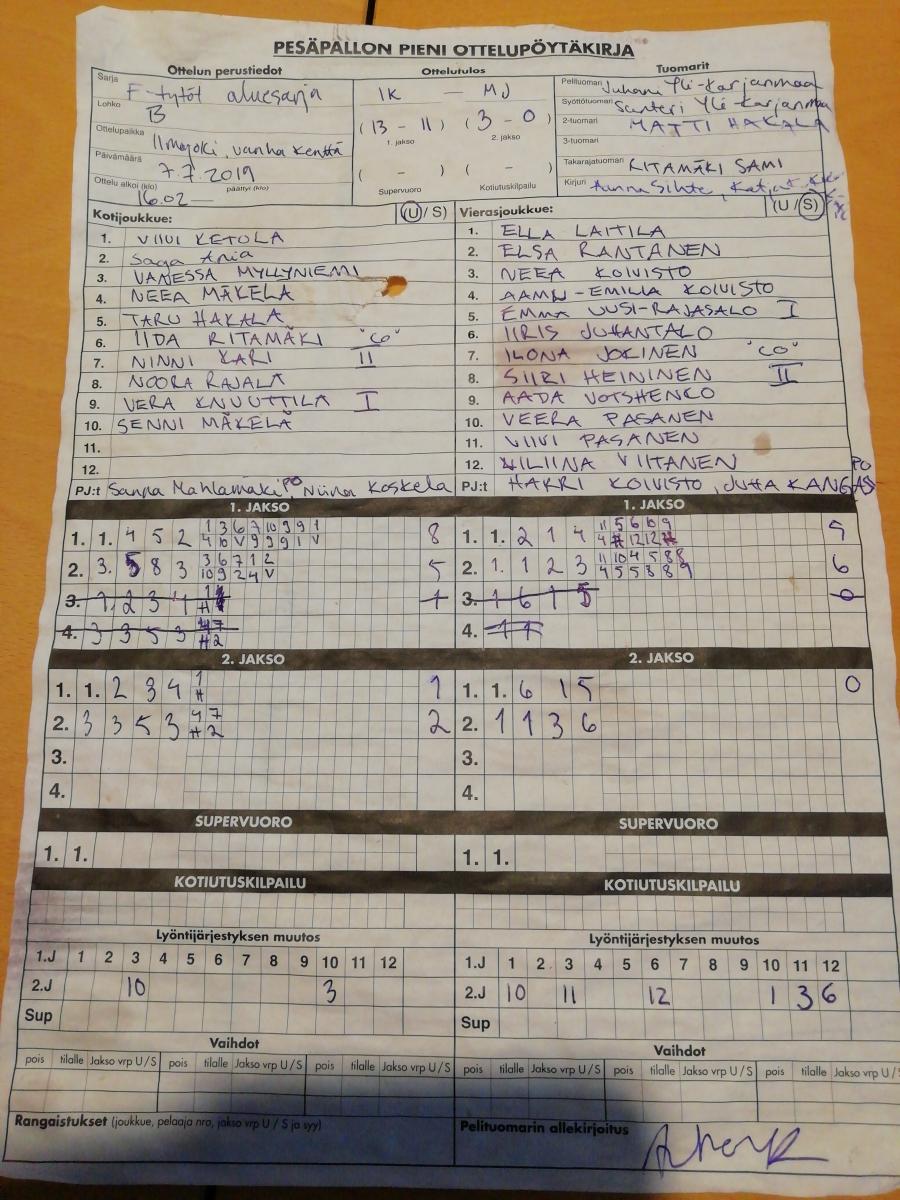 PESÄPALLON PIENI OTTELUPÖYTÄKIRJA
Ottelun perustiedot
Sarja F-tytöt aluesarja
Lohko B
Ottelupaikka Ilmajoki, vanha kenttä
Päivämäärä 7.7.2019
Ottelu alkoi (klo) 16.02 — päättyi (klo)
Ottelutulos
IK — MJ
(13 - 11) (3 - 0)
1. jakso 2. jakso
( - ) ( - )
Supervuoro Kotiutuskilpailu
Tuomarit
Pelituomari Juhani Yli-Karjanmaa
Syöttötuomari Santeri Yli-Karjanmaa
2-tuomari MATTI HAKALA
3-tuomari
Takarajatuomari RITAMÄKI SAMI
Kirjuri
Kotijoukkue: (U / S)
1. VIIVI KETOLA
2. Saga
3. VANESSA MYLLYNIEMI
4. NEEA MÄKELÄ
5. TARU HAKALA
6. IIDA RITAMÄKI "CO"
7. NINNI KARI II
8. NOORA RAJALA
9. VERA KNUUTTILA I
10. SENNI MÄKELÄ
11.
12.
PJ:t Sanna Mahlamäki PO, Niina Koskela
Vierasjoukkue: (U / S)
1. ELLA LAITILA
2. ELSA RANTANEN
3. NEEA KOIVISTO
4. AAMU-EMILIA KOIVISTO
5. EMMA UUSI-RAJASALO I
6. IIRIS JUHANTALO
7. ILONA JOKINEN "CO"
8. SIIRI HEININEN II
9. AADA VOTSHENCO
10. VEERA PASANEN
11. VIIVI PASANEN
12. VILIINA VIITANEN
PJ:t HARRI KOIVISTO, JUHA KANGAS PO
1. JAKSO
1. 1. 4 5 2 1 3 6 7 10 9 9 1 8
4 10 V 9 9 9 1 V
2. 3. 5 8 3 3 6 7 1 2 5
10 9 2 4 V
3. 1, 2 3 4 1 1
4. 3 3 5 3 4 7
# 2
1. JAKSO
1. 1. 2 1 4 11 5 6 10 9
4 # 12 12 #
2. 1. 1 2 3 11 10 4 5 8 8 6
4 5 5 8 8 9
3. 1 6 1 5 0
4. 1 1
2. JAKSO
1. 1. 2 3 4 1 1
#
2. 3 3 5 3 4 7 2
# 2
3.
4.
2. JAKSO
1. 1. 6 1 5 0
2. 1 1 3 6
3.
4.
SUPERVUORO
1. 1.
SUPERVUORO
1. 1.
KOTIUTUSKILPAILU
KOTIUTUSKILPAILU
Lyöntijärjestyksen muutos
1.J 1 2 3 4 5 6 7 8 9 10 11 12
2.J 10 3
Sup
Lyöntijärjestyksen muutos
1.J 1 2 3 4 5 6 7 8 9 10 11 12
2.J 10 11 12 1 3 6
Sup
Vaihdot
pois tilalle Jakso vrp U / S pois tilalle Jakso vrp U / S pois tilalle Jakso vrp U / S
Vaihdot
pois tilalle Jakso vrp U / S pois tilalle Jakso vrp U / S pois tilalle Jakso vrp U / S
Rangaistukset (joukkue, pelaaja nro, jakso vrp U / S ja syy)
Pelituomarin allekirjoitus